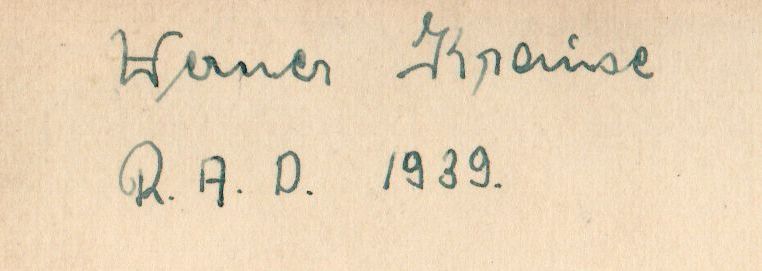 Werner Krause
R. A. D. 1939.